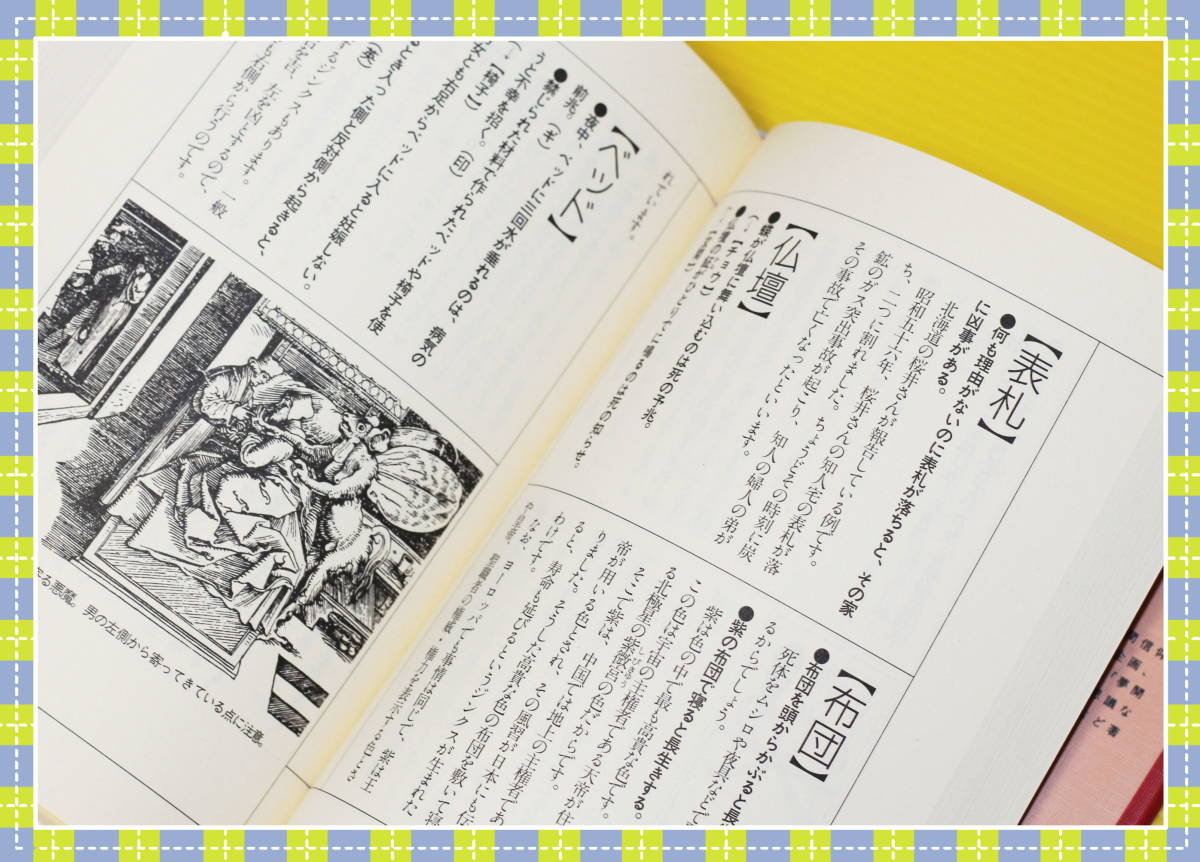 【表札】
●何も理由がないのに表札が落ちると、その家
に凶事がある。
北海道の桜井さんが報告している例です。
昭和五十六年、桜井さんの知人宅の表札が落
ち、二つに割れました。ちょうどその時刻に炭
鉱のガス突出事故が起こり、知人の婦人の弟が
その事故で亡くなったといいます。
【仏壇】
●蝶が仏壇に舞い込むのは死の予兆。
(→【チョウ】)
ひとりでに鳴るのは死の知らせ。
【布団】
●布団を頭からかぶると長
死体をムシロや夜具などで
るからでしょう。
●紫の布団で寝ると長生きする。
紫は色の中で最も高貴な色です。
この色は宇宙の主権者である天帝が住
る北極星の紫微宮の色だからです。
しびきゅう
そこで紫は、中国では地上の主権者であ
帝が用いる色とされ、その風習が日本にも伝
りました。そうした高貴な色の布団を敷いて寝
ると、寿命も延びるというジンクスが生まれた
わけです。
なお、ヨーロッパでも事情は同じで、紫は王
聖職者の権威・権力を表示する色とさ
れています。
【ベッド】
●夜中、ベッドに三回水が垂れるのは、病気の
前兆。(ギ)
●禁じられた材料で作られたベッドや椅子を使
うと不幸を招く。(印)
(→【椅子】)
女とも右足からベッドに入ると妊娠しない。
とき入った側と反対側から起きると、
(英)
するジンクスもあります。一般
を吉、左を凶とするので、
も右側から行うのです。
る悪魔。男の左側から寄ってきている点に注意。